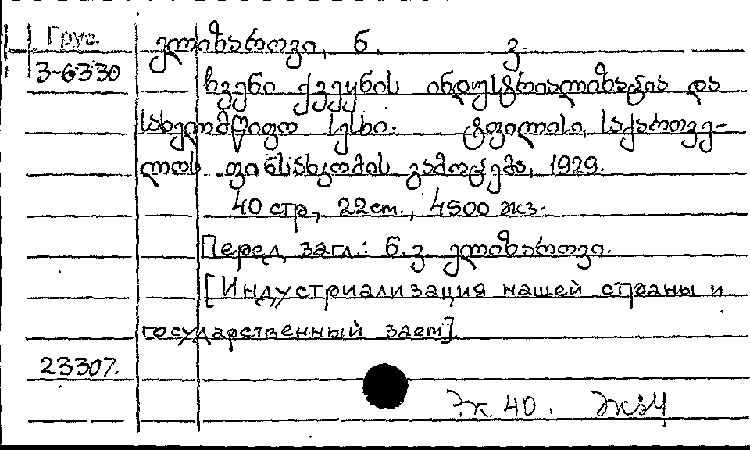 Груз.
3-6330
ელიზაროვი, ნ. ვ.
ჩვენი ქვეყნის ინდუსტრიალიზაცია და
სახელმწიფო სესხი. ტფილისი, საქართვე-
ლოს ფინსახკომის გამოცემა, 1929.
40 стр., 22 cm., 4500 экз.
Перед загл.: ნ. ვ. ელიზაროვი.
[Индустриализация нашей страны и
государственный заем]
23307.
Эк 40.